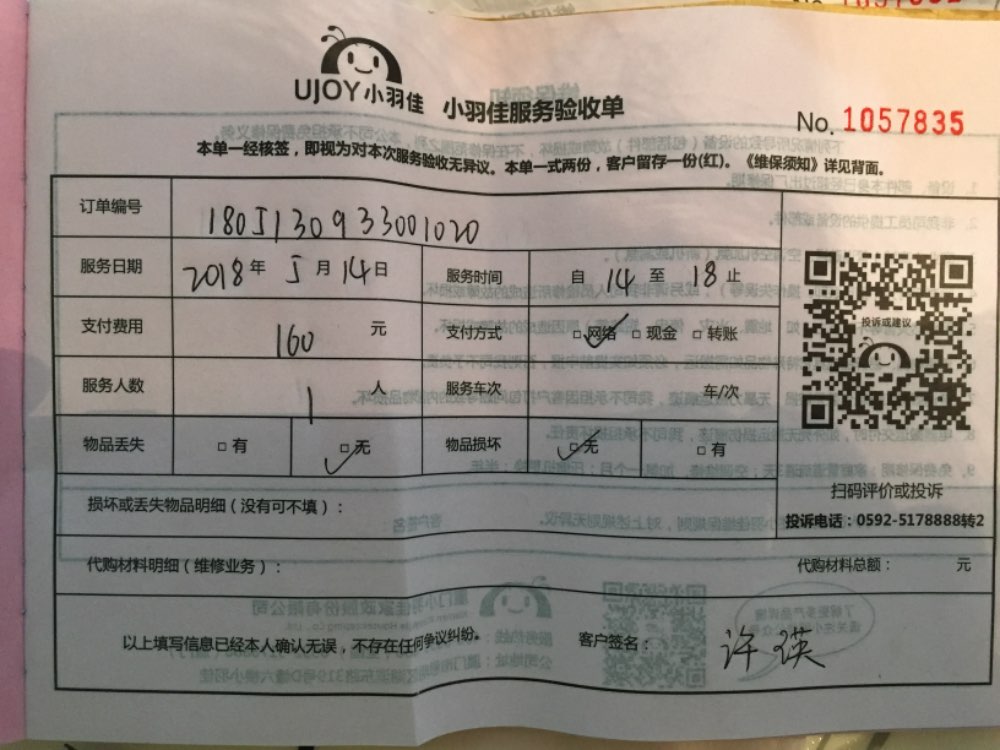 UJOY小羽佳 小羽佳服务验收单
No. 1057835
本单一经核签，即视为对本次服务验收无异议。本单一式两份，客户留存一份(红)。《维保须知》详见背面。
订单编号 1805130933001020
服务日期 2018年 5月 14日 服务时间 自 14 至 18 止
支付费用 160 元 支付方式 □网络 □现金 □转账
服务人数 1 人 服务车次 车/次
物品丢失 □有 □无 物品损坏 □无 □有
投诉或建议
扫码评价或投诉
投诉电话：0592-5178888转2
损坏或丢失物品明细（没有可不填）：
代购材料明细（维修业务）： 代购材料总额： 元
以上填写信息已经本人确认无误，不存在任何争议纠纷。 客户签名： 许瑛